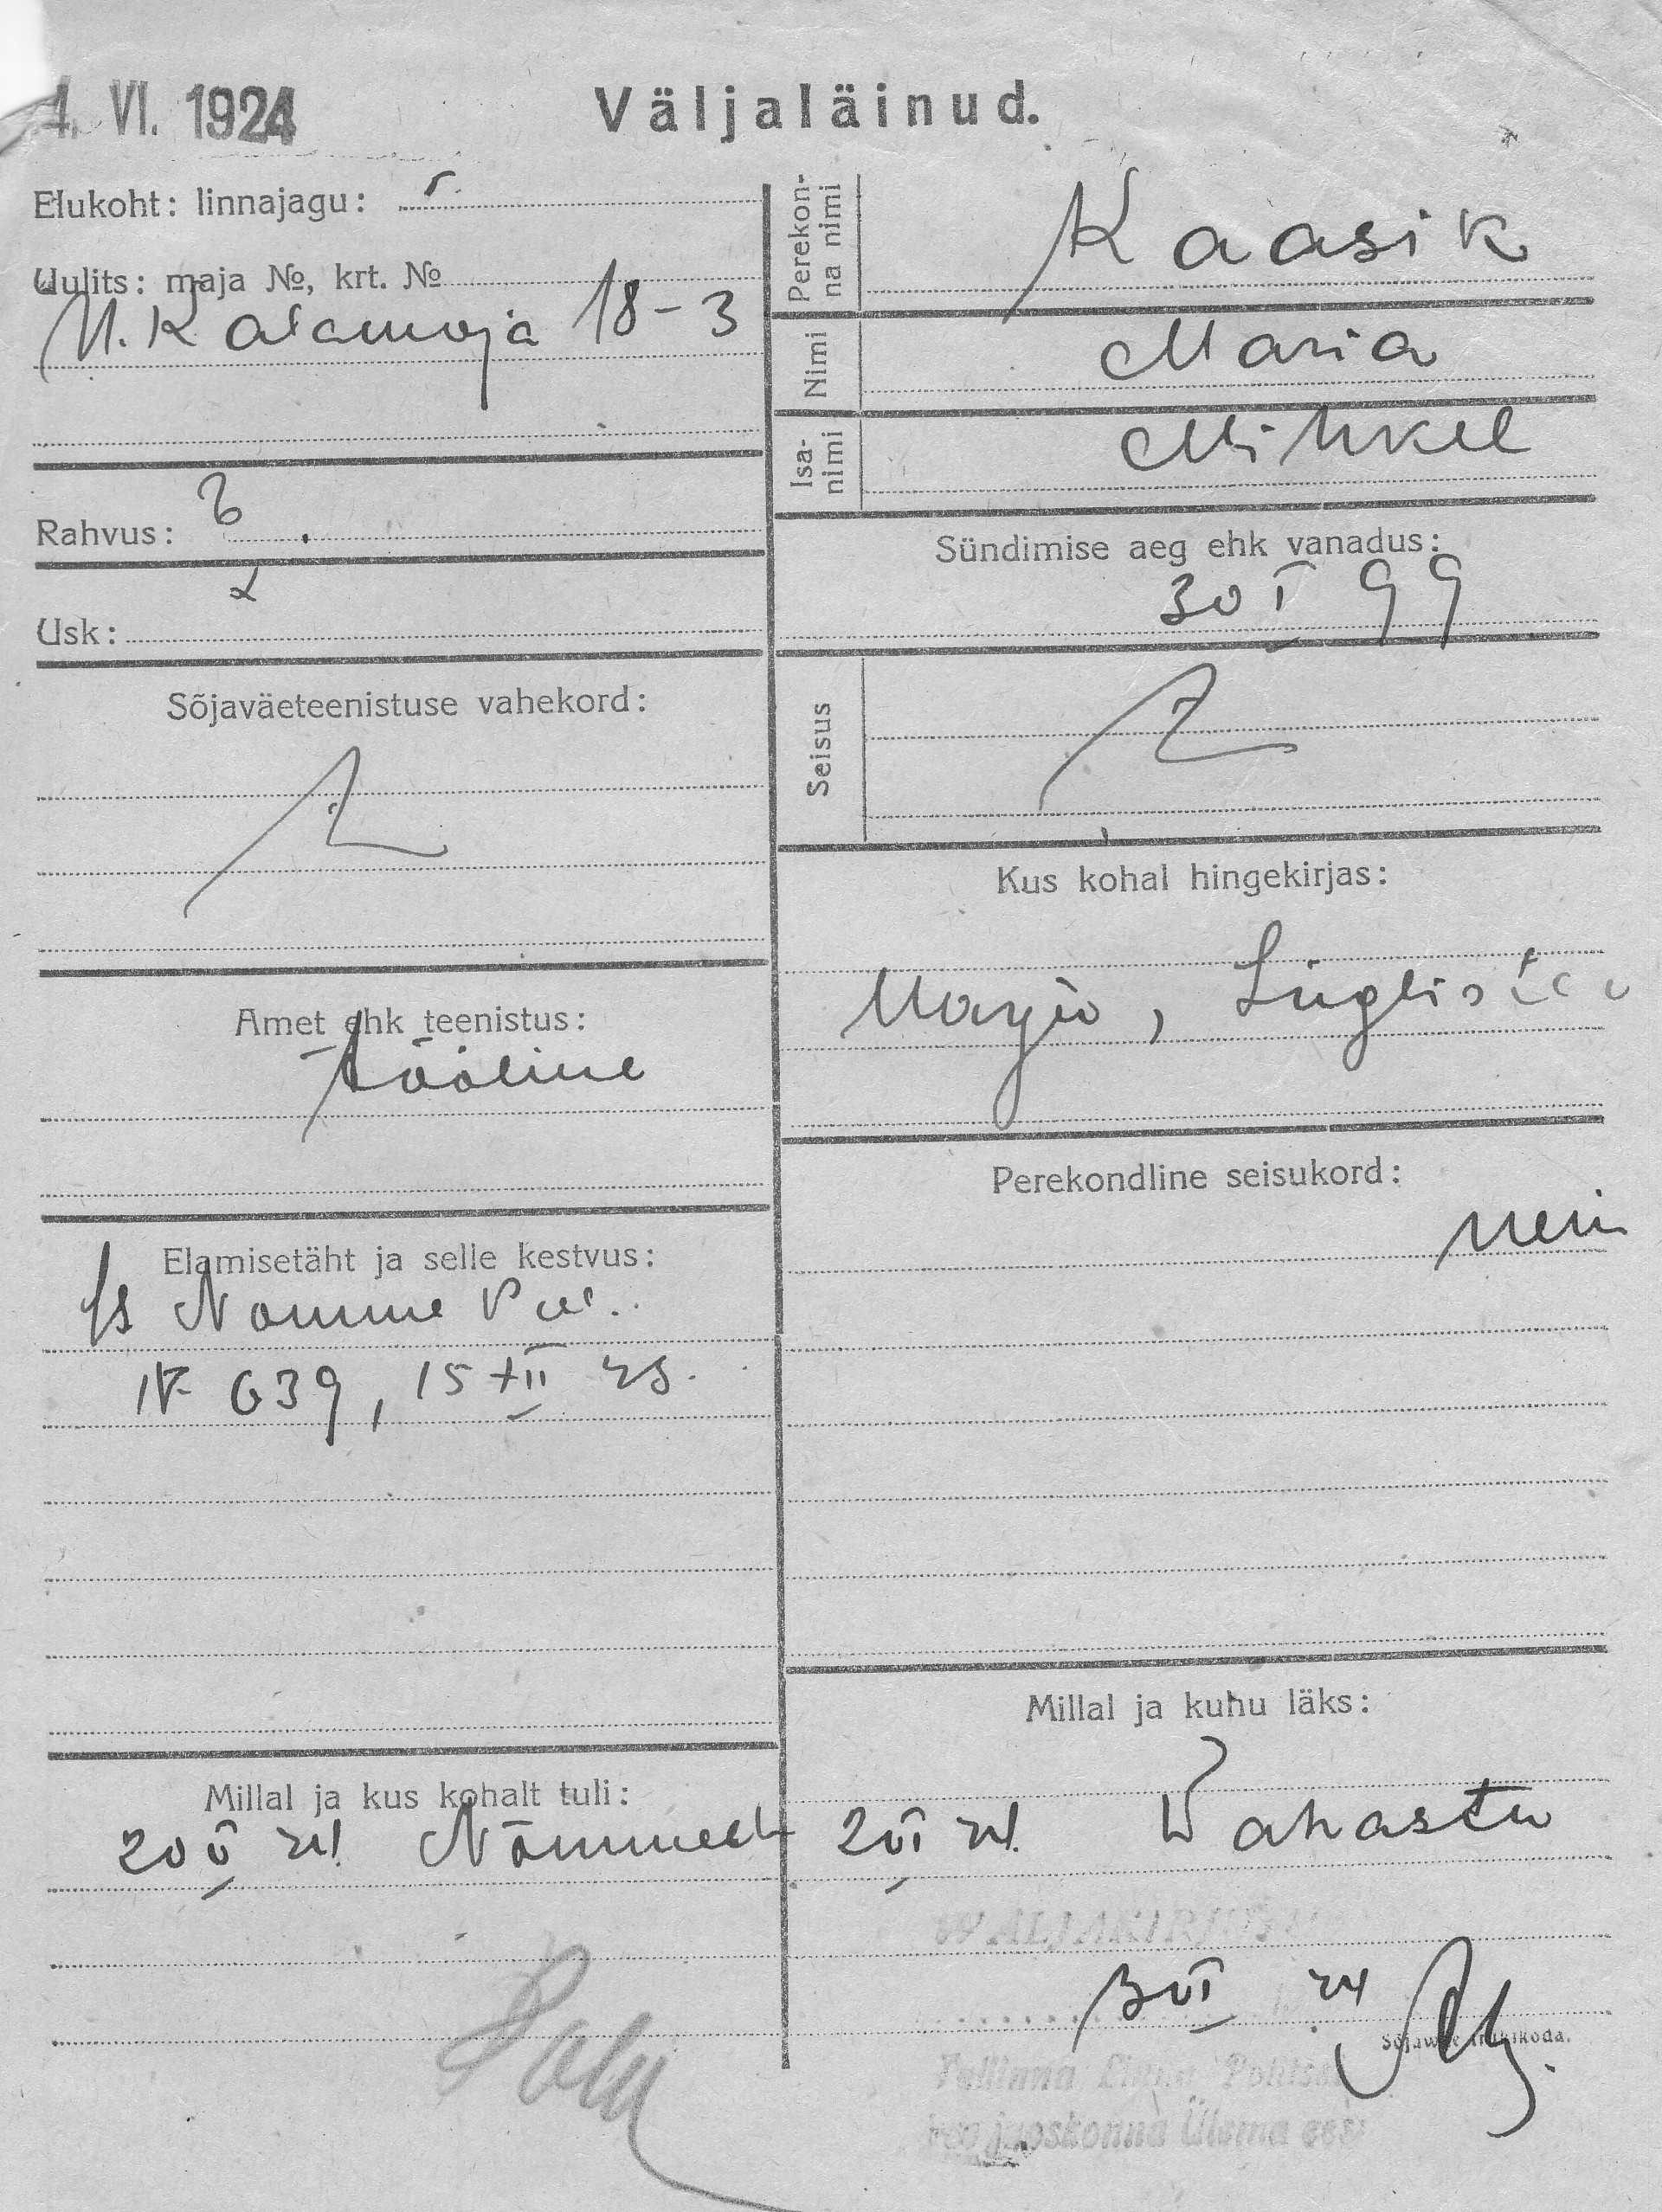 4. VI. 1924
Väljaläinud.
Elukoht: linnajagu: 5.
Uulits: maja №, krt. №
M. Kalamaja 18-3
Rahvus: E.
Usk: L
Sõjaväeteenistuse vahekord:
Amet ehk teenistus:
tööline
Elamisetäht ja selle kestvus:
Is Nõmme
№ 639, 15 XII 23.
Millal ja kus kohalt tuli:
20 V 24. Nõmmelt
Perekonna nimi
Kaasik
Nimi
Maria
Isanimi
Mihkel
Sündimise aeg ehk vanadus:
30 I 99
Seisus
Kus kohal hingekirjas:
Harju,
Perekondline seisukord:
neiu
Millal ja kuhu läks:
2 VI 24. Vahastu
WÄLJAKIRJUTATUD
3 VI 24
Sõjawäe trükikoda.
Tallinna Linna Politsei
jaoskonna Ülema